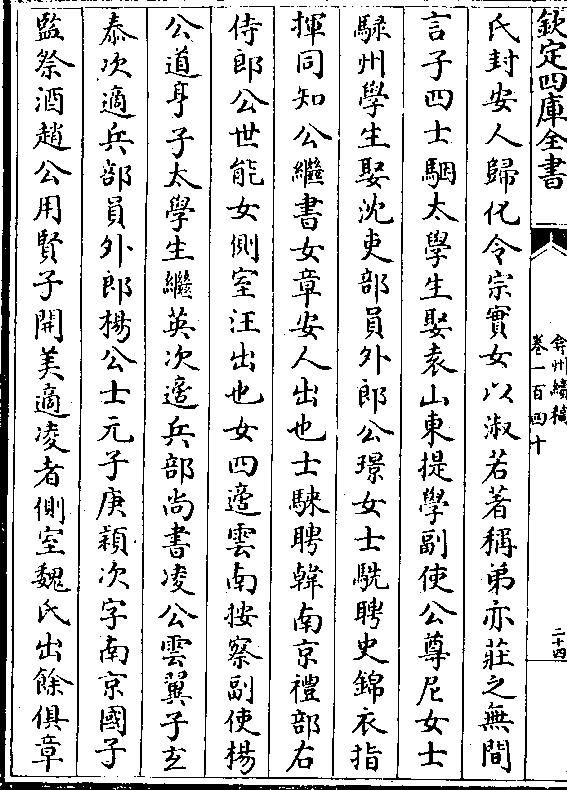 欽定四庫全書
弇州續稿
卷一百四十
二十四
氏封安人歸化令宗實女以淑若著稱弟亦莊之無間
言子四士駰太學生娶袁山東提學副使公尊尼女士
騄州學生娶沈吏部員外郎公璟女士駪聘史錦衣指
揮同知公繼書女章安人出也士騋聘韓南京禮部右
侍郎公世能女側室汪出也女四適雲南按察副使楊
公道亨子太學生繼英次適兵部尚書凌公雲翼子玄
泰次適兵部員外郎楊公士元子庚穎次字南京國子
監祭酒趙公用賢子開美適凌者側室魏氏出餘俱章